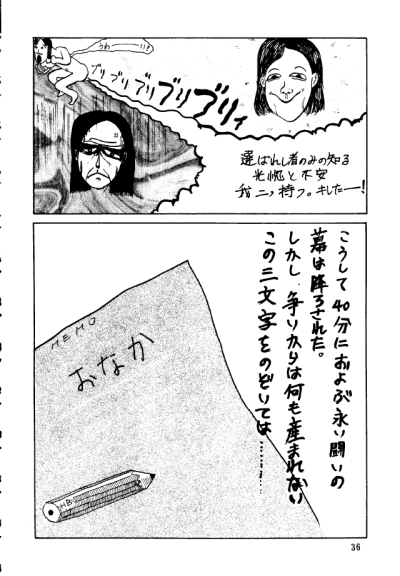 うわ……!!
ブリブリブリブリブリィ
選ばれし者のみの知る
光惚と不安
我二ッ持つ。キしたー!
こうして40分におよぶ永い闘いの
幕は降ろされた。
しかし、争いからは何も産まれない
この三文字をのぞいては………
MEMO
おなか
HB
36